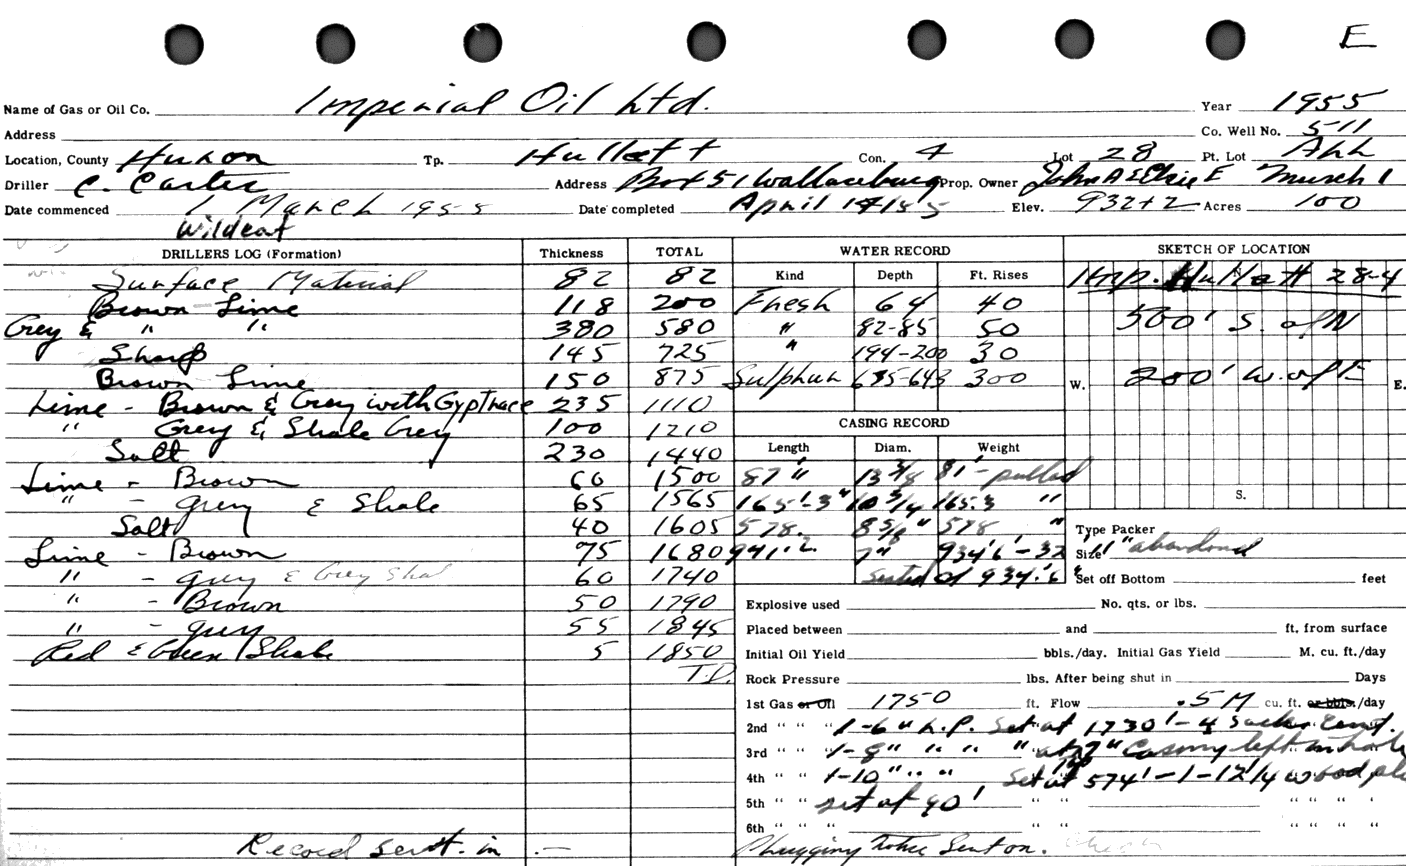 E
Name of Gas or Oil Co. Imperial Oil Ltd. Year 1955
Address Co. Well No. 5-11
Location, County Huron Tp. Hullett Con. 4 Lot 28 Pt. Lot All
Driller C. Carter Address Box 51 Wallaceburg Prop. Owner John A & Elsie E Munsch
Date commenced 1 March 1955 Date completed April 14/55 Elev. 932+2 Acres 100
Wildcat
DRILLERS LOG (Formation) Thickness TOTAL WATER RECORD SKETCH OF LOCATION
Surface Material 82 82 Kind Depth Ft. Rises Imp. Hullett 28-4
Brown Lime 118 200 Fresh 64 40 500' S. of N
Grey & " " 380 580 " 82-85 50
Sharp 145 725 " 194-200 30
Brown Lime 150 875 Sulphur 300 W. 200' W. of E E.
Lime - Brown & Grey with Gyp Trace 235 1110
" Grey & Shale Grey 100 1210 CASING RECORD
Salt 230 1440 Length Diam. Weight
Lime - Brown 60 1500 87' " 13 3/8 81' - pulled
" - grey & Shale 65 1565 165'-3" 10 3/4 165.3 " S.
Salt 40 1605 578. 8 5/8" 578 " Type Packer
Lime - Brown 75 1680 941'.2 7" 934'6"-32' 11" abandoned Size
" - grey & Grey Shal 60 1740 Seated at 934'.6" Set off Bottom feet
" - Brown 50 1790 Explosive used No. qts. or lbs.
" - grey 55 1845 Placed between and ft. from surface
Red & Green Shale 5 1850 Initial Oil Yield bbls./day. Initial Gas Yield M. cu. ft./day
T.D. Rock Pressure lbs. After being shut in Days
1st Gas or Oil 1750 ft. Flow .5M cu. ft. or bbls./day
2nd " " " 1-6" L.P. Set at 1730'-4 Sacks Cemt.
3rd " " 1-8" " " " at 7" Casing left in hole
4th " " 1-10" " " Set at 574'-1-12 1/4 wood pl
5th " " set at 90' " " " " "
6th " " " " " " "
Record sent in .— Plugging Sent on.